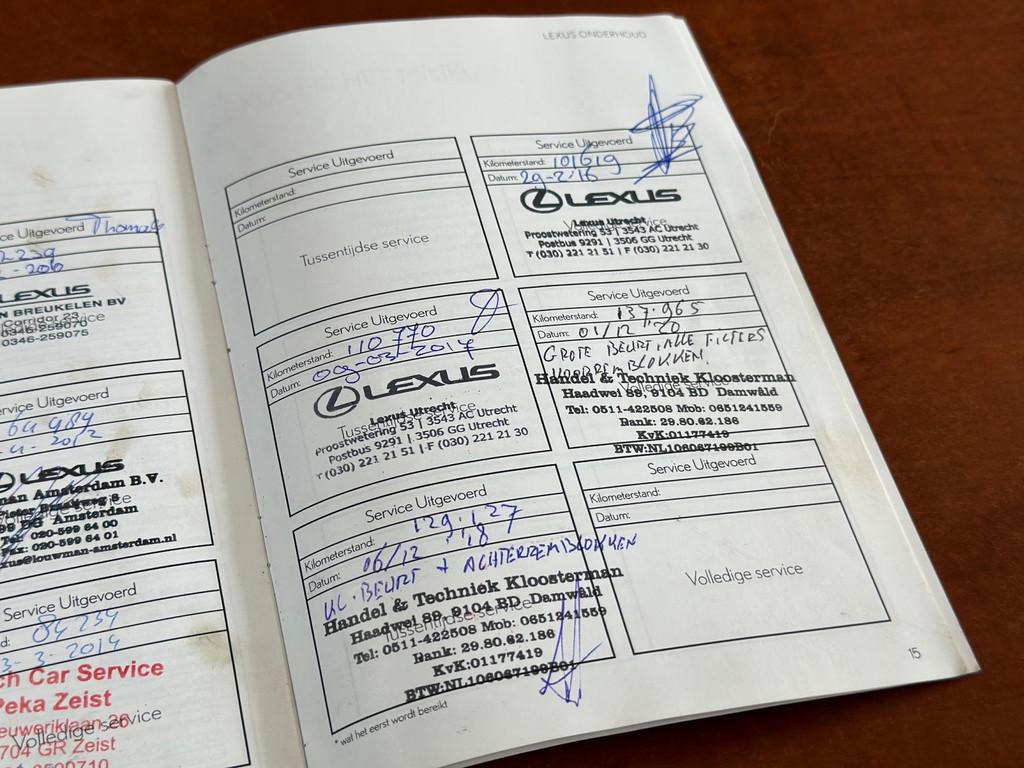 LEXUS ONDERHOUD
ce Uitgevoerd Thomas
LEXUS
N BREUKELEN BV
Corridor 23
0346-259070
0346-259075
ervice Uitgevoerd
64984
2012
LEXUS
man Amsterdam B.V.
Amsterdam
Tel: 020-599 64 00
Fax: 020-599 64 01
xus@louwman-amsterdam.nl
Service Uitgevoerd
84234
3-3-2014
ch Car Service
Peka Zeist
euweriklaan 26
Volledige service
704 GR Zeist
Service Uitgevoerd
Kilometerstand:
Datum:
Tussentijdse service
Service Uitgevoerd
Kilometerstand: 101619
Datum: 29-2-'16
LEXUS
Lexus Utrecht
Proostwetering 53 | 3543 AC Utrecht
Postbus 9291 | 3506 GG Utrecht
T (030) 221 21 51 | F (030) 221 21 30
Service Uitgevoerd
Kilometerstand: 110770
Datum: 09-03-2017
LEXUS
Lexus Utrecht
Tussentijdse service
Proostwetering 53 | 3543 AC Utrecht
Postbus 9291 | 3506 GG Utrecht
T (030) 221 21 51 | F (030) 221 21 30
Service Uitgevoerd
Kilometerstand: 137.965
Datum: 01/12 '20
GROTE BEURT, ALLE FILTERS
VOORREMBLOKKEN.
Handel & Techniek Kloosterman
Volledige service
Haadwei 89, 9104 BD Damwâld
Tel: 0511-422508 Mob: 0651241559
Bank: 29.80.62.186
KvK:01177419
BTW:NL106067199B01
Service Uitgevoerd
Kilometerstand: 129.127
Datum: 06/12 '18
KL. BEURT + ACHTERREMBLOKKEN
Handel & Techniek Kloosterman
Haadwei 89, 9104 BD Damwâld
Tussentijdse service
Tel: 0511-422508 Mob: 0651241559
Bank: 29.80.62.186
KvK:01177419
BTW:NL106067199B01
* wat het eerst wordt bereikt
Service Uitgevoerd
Kilometerstand:
Datum:
Volledige service
15